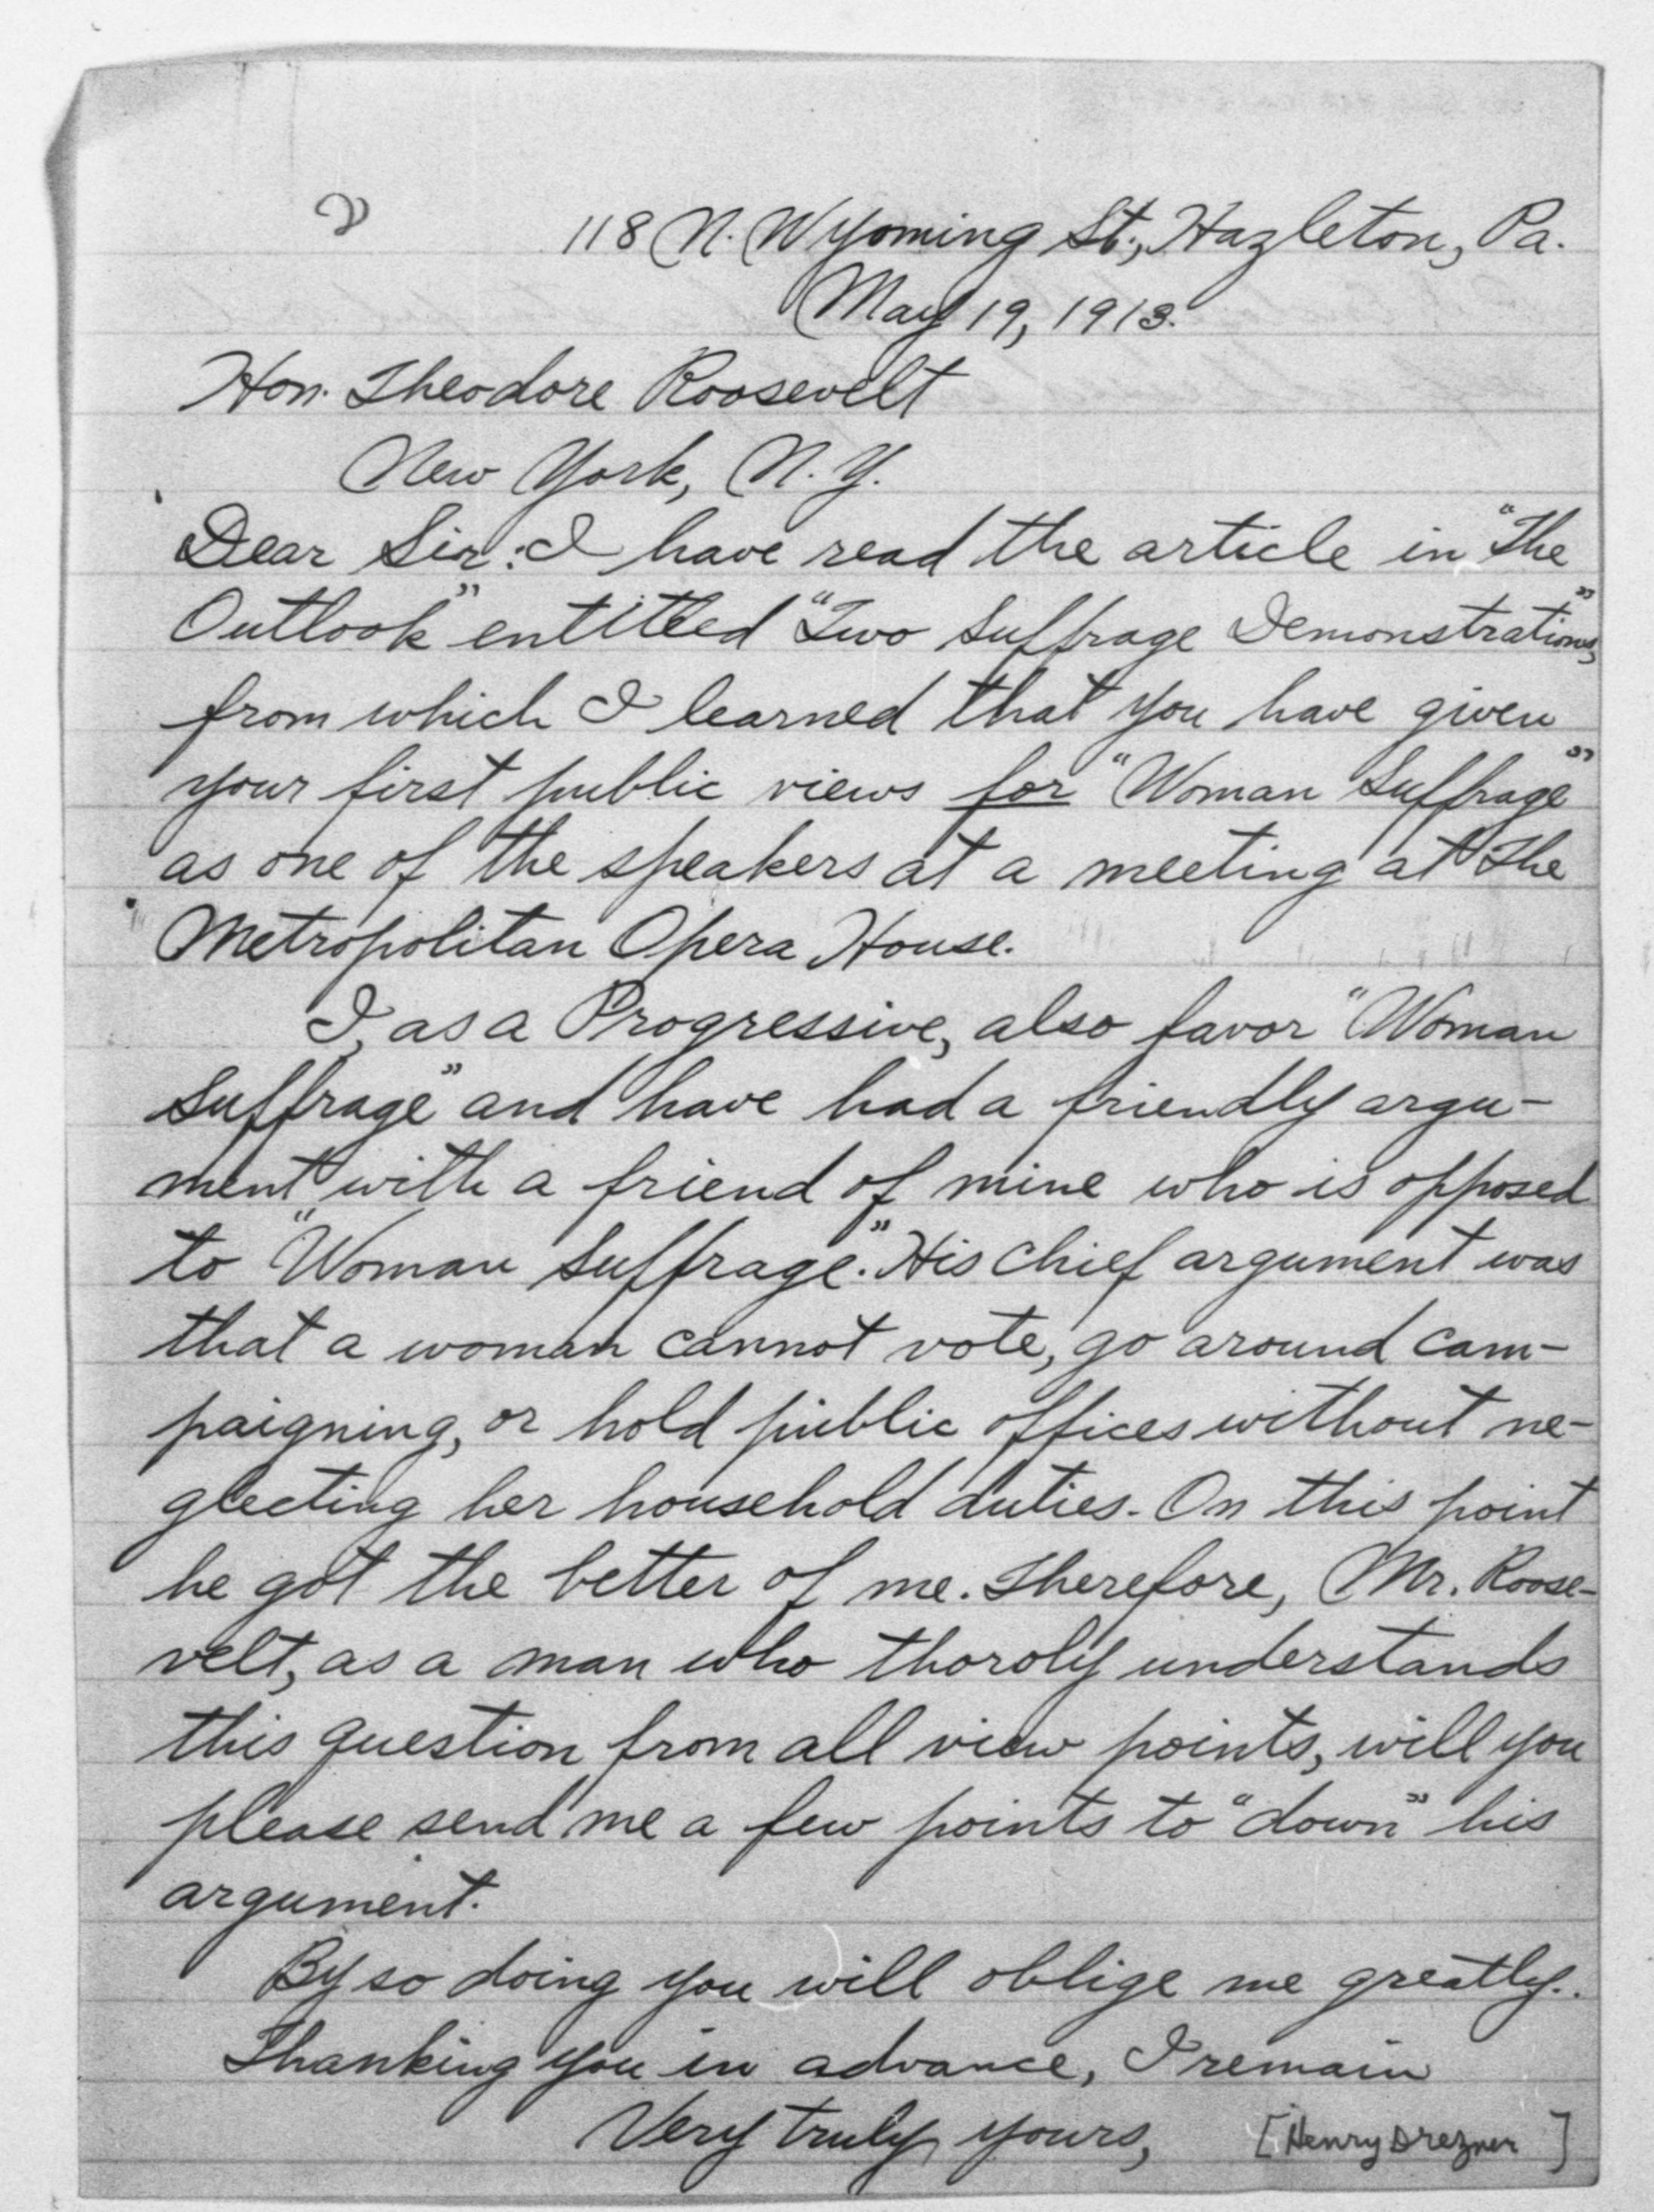 118 N. Wyoming St., Hazleton, Pa.
May 19, 1913.
Hon. Theodore Roosevelt
New York, N. Y.
Dear Sir: I have read the article in "The
Outlook" entitled "Two Suffrage Demonstrations",
from which I learned that you have given
your first public views for "Woman Suffrage"
as one of the speakers at a meeting at the
Metropolitan Opera House.
I, as a Progressive, also favor "Woman
Suffrage" and have had a friendly argu-
ment with a friend of mine who is opposed
to "Woman Suffrage." His chief argument was
that a woman cannot vote, go around cam-
paigning, or hold public offices without ne-
glecting her household duties. On this point
he got the better of me. Therefore, Mr. Roose-
velt, as a man who thoroly understands
this question from all view points, will you
please send me a few points to "down" his
argument.
By so doing you will oblige me greatly.
Thanking you in advance, I remain
Very truly yours, [Henry Drezner]